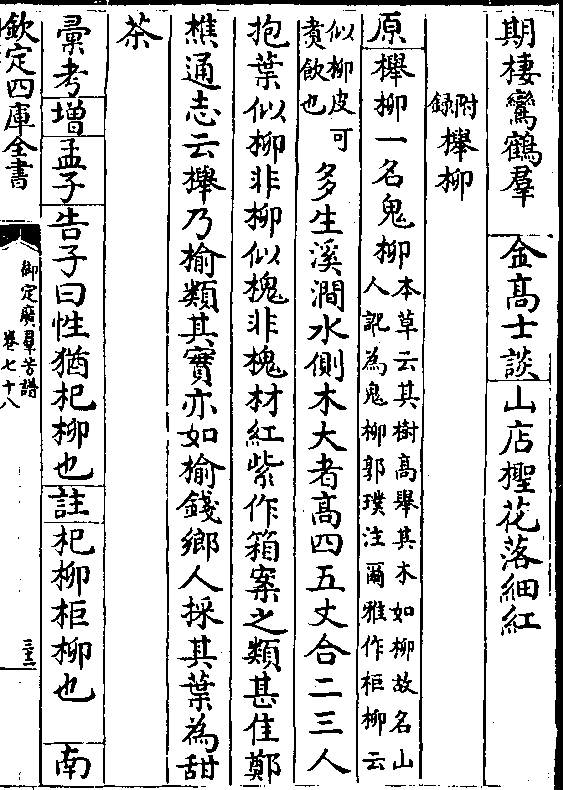 期棲鸞鶴羣　金髙士談　山店檉花落細紅
附録　櫸柳
原　櫸柳一名鬼柳　本草云其樹髙舉其木如柳故名山
人訛為鬼柳郭璞注爾雅作柜柳云
似柳皮可
煑飲也　多生溪澗水側木大者髙四五丈合二三人
抱葉似柳非柳似槐非槐材紅紫作箱案之類甚佳鄭
樵通志云櫸乃榆類其實亦如榆錢鄉人採其葉為甜
茶
彚考　增　孟子　告子曰性猶杞柳也　註　杞柳柜柳也　南
欽定四庫全書
御定廣羣芳譜
卷七十八